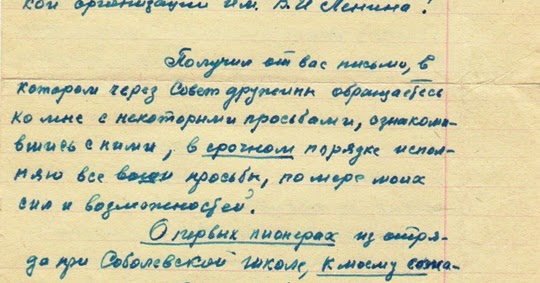 кой организации им. В.И Ленина!
Получил от вас письмо, в
котором через Совет дружины обращаетесь
ко мне с некоторыми просьбами, ознакоми-
вшись с ними, в срочном порядке испол-
няю все ваши просьбы, по мере моих
сил и возможностей.
О первых пионерах из отря-
да при Соболевской школе, к моему сожа-